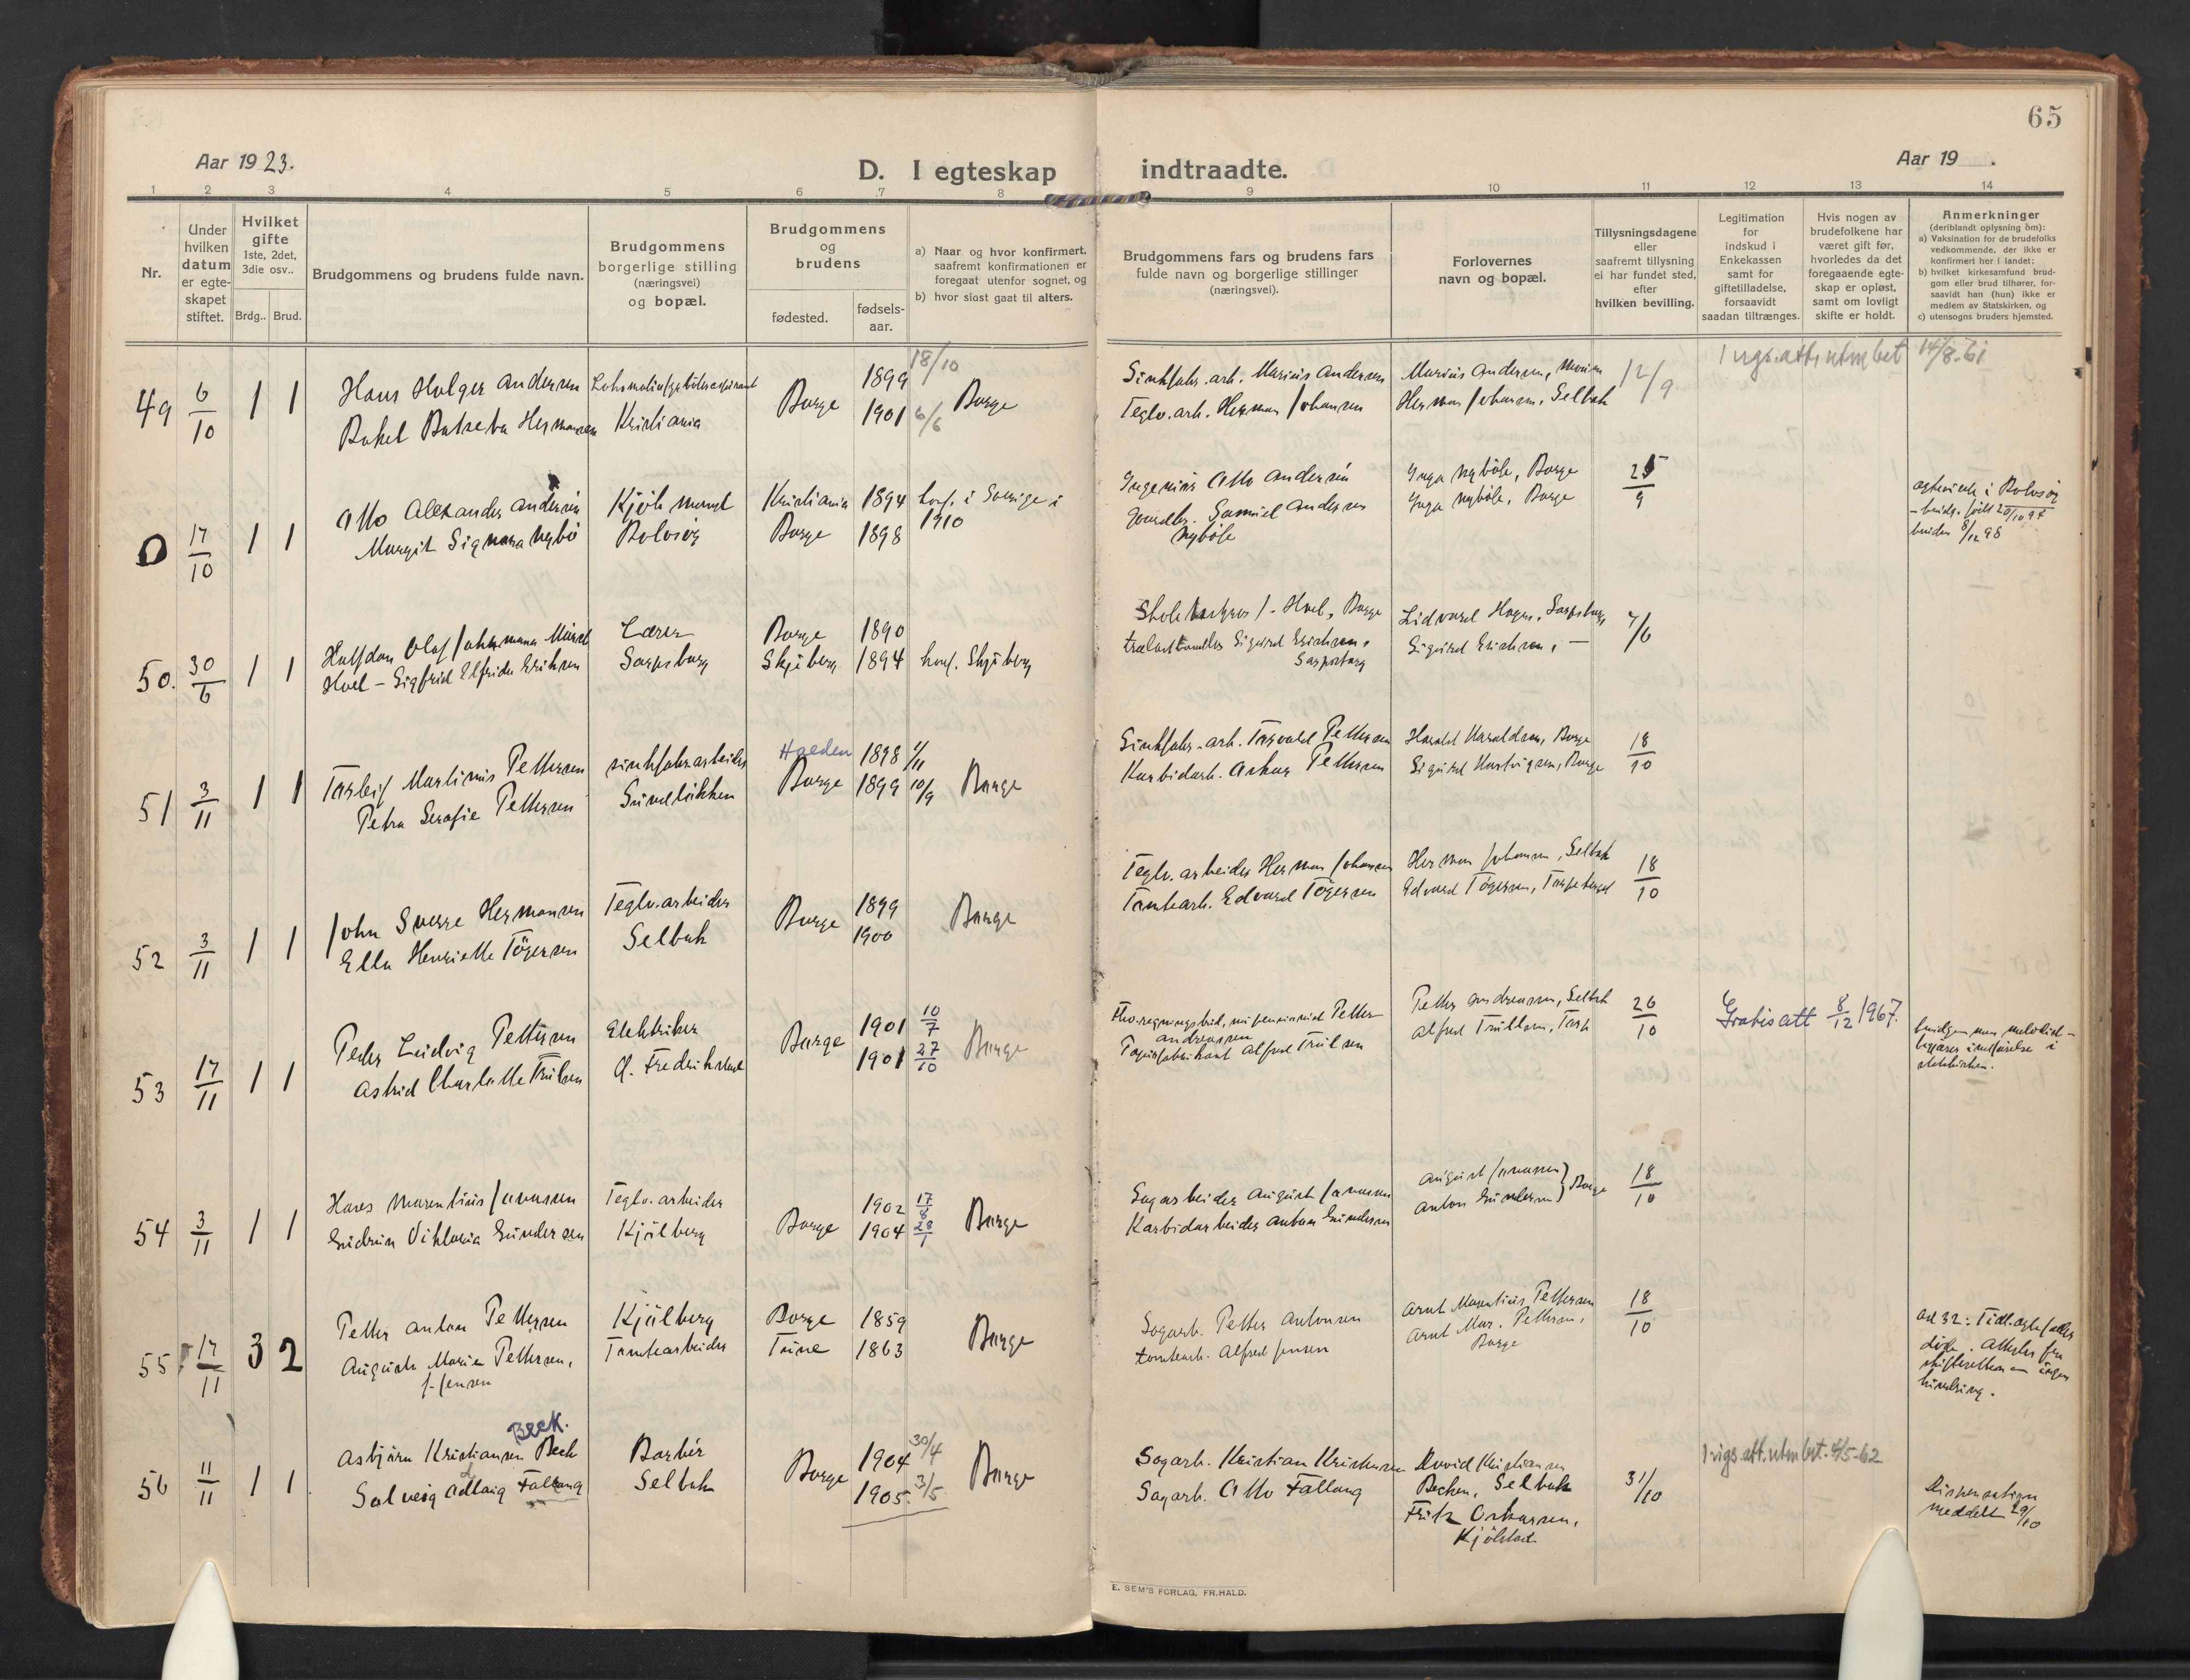 65
Aar 1923.
D. I egteskap indtraadte.
Aar 19 .
1 2 3 4 5 6 7 8 9 10 11 12 13 14
Nr.
Under
hvilken
datum
er egte-
skapet
stiftet.
Hvilket
gifte
1ste, 2det,
3die osv..
Brdg.. Brud.
Brudgommens og brudens fulde navn.
Brudgommens
borgerlige stilling
(næringsvei)
og bopæl.
Brudgommens
og
brudens
fødested.
fødsels-
aar.
a) Naar og hvor konfirmert,
saafremt konfirmationen er
foregaat utenfor sognet, og
b) hvor sidst gaat til alters.
Brudgommens fars og brudens fars
fulde navn og borgerlige stillinger
(næringsvei).
Forlovernes
navn og bopæl.
Tillysningsdagene
eller
saafremt tillysning
ei har fundet sted,
efter
hvilken bevilling.
Legitimation
for
indskud i
Enkekassen
samt for
giftetilladelse,
forsaavidt
saadan tiltrænges.
Hvis nogen av
brudefolkene har
været gift før,
hvorledes da det
foregaaende egte-
skap er opløst,
samt om lovligt
skifte er holdt.
Anmerkninger
(deriblandt oplysning om):
a) Vaksination for de brudefolks
vedkommende, der ikke er
konfirmert her i landet;
b) hvilket kirkesamfund brud-
gom eller brud tilhører, for-
saavidt han (hun) ikke er
medlem av Statskirken, og
c) utensogns bruders hjemsted.
49 6/10 1 1
Hans Holger Andersen
Rakel Batseba Hermansen
Kristiania
Borge
1899 18/10
1901 6/6
Borge
Sinkfabr. arb. Marius Andersen
Teglv. arb. Herman Johansen
Marius Andersen, Moum
Herman Johansen, Selbak
12/9
1 vigs. att. utm bet 14/8-61
0 17/10 1 1
Otto Alexander Andersén
Margit Signora Nybö
Kjöbmand
Rolvsöy
Kristiania 1894
Borge 1898
konf. i Sverige i
1910
Ingeniör Otto Andersén
Gaardbr. Samuel Andersen
Nyböle
Inga Nyböle, Borge
Inga Nyböle, Borge
25/9
egteviede i Rolvsöy
- brudg. född 20/10 94
bruden 8/12 98
50. 30/6 1 1
Halfdan Olaf Johannes
Hvel - Sigfrid Elfrida Eriksen
Lærer
Sarpsborg
Borge 1890
Skjeberg 1894
konf. Skjeberg
Hvel, Borge
trælasthandler Sigurd Erichsen,
Sarpsborg
Lidvard Hagen, Sarpsborg
Sigurd Erichsen, —
7/6
51 3/11 1 1
Torleif Martinius Pettersen
Petra Serafie Pettersen
sinkfabr arbeider
Sundlökken
Hæden 1898 1/11
Borge 1899 10/9
Borge
Sinkfabr. arb. Torvald Pettersen
Karbidarb. Oskar Pettersen
Harald Haraldsen, Borge
Sigurd Hartvigsen, Borge
18/10
52 3/11 1 1
John Sverre Hermansen
Ella Henriette Tögersen
Teglv. arbeider
Selbak
Borge
1899
1900
Borge
Teglv. arbeider Herman Johansen
Tomtearb. Edvard Tögersen
Herman Johansen, Selbak
Edvard Tögersen, Torpeberget
18/10
53 17/11 1 1
Peder Ludvig Pettersen
Astrid Charlotte Trulsen
Elektriker
Gl. Fredrikstad
Borge
1901 10/7
1901 27/10
Borge
Petter
Andreassen
Alfred Trulsen
Petter Andreassen, Selbak
Alfred Trulsen, Torp
26/10
Gratis att 8/12 1967.
54 3/11 1 1
Hans Marentius Jonassen
Gudrun Viktoria Gundersen
Teglv. arbeider
Kjölberg
Borge
1902 17/8
1904 28/1
Borge
Sagarbeider August Jonassen
Karbidarbeider Anton Gundersen
August Jonassen
Anton Gundersen } Borge
18/10
55 17/11 3 2
Petter Anton Pettersen
August Marie Pettersen,
f. Jensen
Kjölberg
Tomtearbeider
Borge 1859
Tune 1863
Borge
Sagarb. Petter Antonsen
tomtearb. Alfred Jensen
Arnt Marentius Pettersen
Arnt Mar. Pettersen,
Borge
18/10
56 11/11 1 1
Beck.
Asbjörn Kristiansen Beck
Solveig Adlaug Fallang
Barbér
Selbak
Borge
1904 30/4
1905. 3/5
Borge
Sagarb. Kristian Kristensen
Sagarb. Otto Fallang
David Kristiansen
Becken, Selbak
Fritz Oskarsen,
Kjölstad
31/10
1 vigs. att. utm bet. 4/5-62
Dispensation
meddelt 29/10
E. SEM'S FORLAG, FR.HALD.